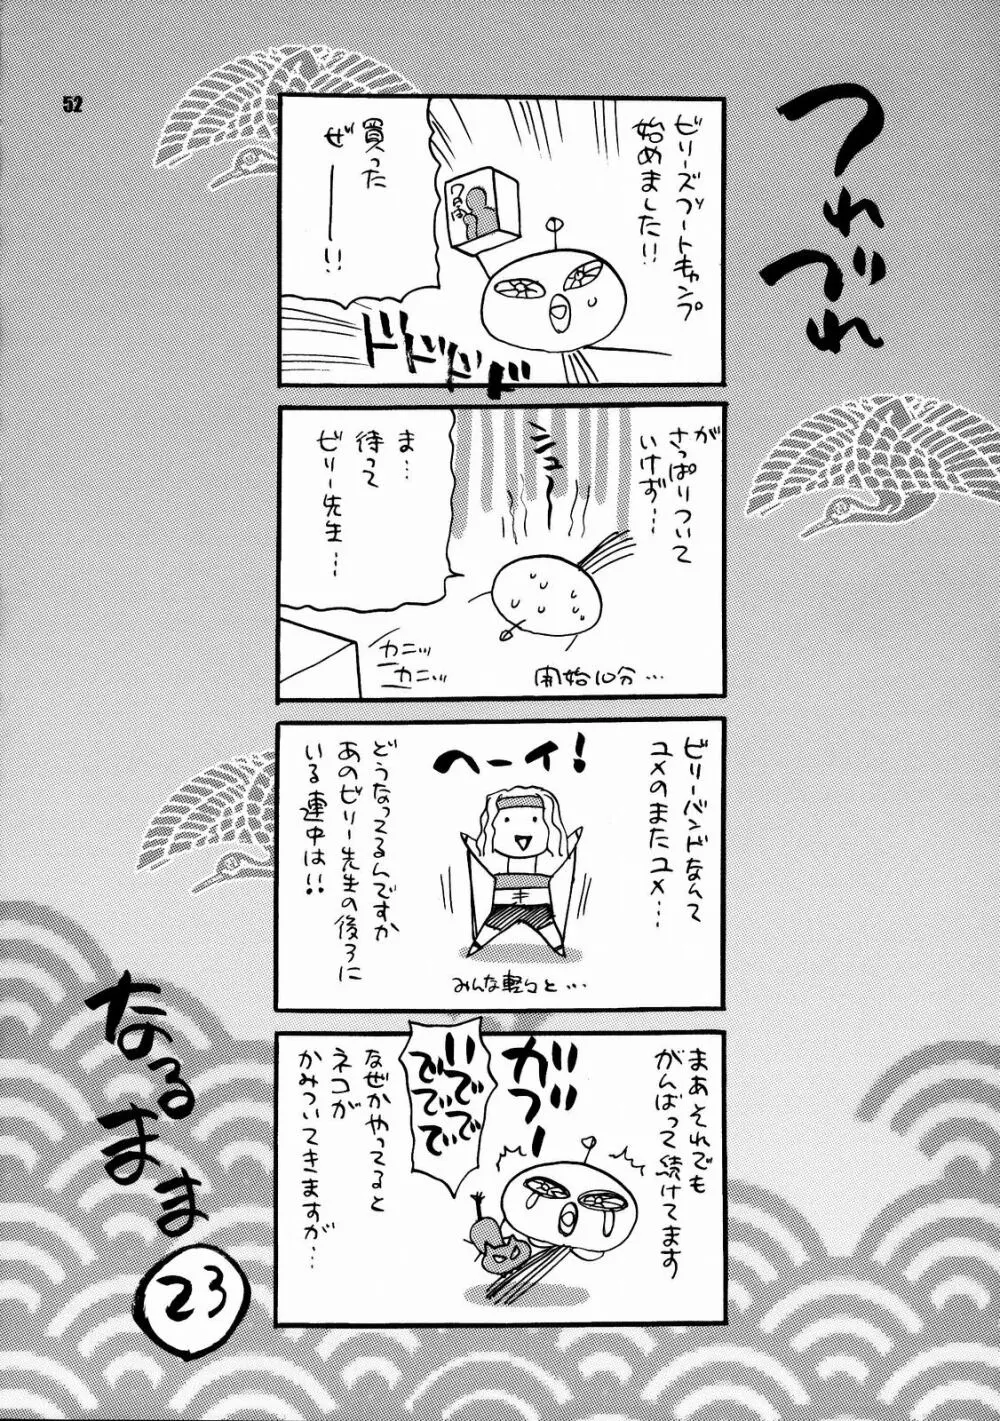 52
つれづれ
なるまま
23
ビリーズブートキャンプ
始めました!!
買った
ぜーー!!
ドドドドド
が
さっぱりついて
いけず…
シュー
ま…
待って
ビリー先生…
カニッ
カニッ
開始10分…
ビリーバンドなんて
ユメのまたユメ…
ヘーイ!
どうなってるんですか
あのビリー先生の後ろに
いる連中は!!
みんな軽々と…
まあそれでも
がんばって続けてます
ガブー
いでで
でででで
なぜかやってると
ネコが
かみついてきますが…